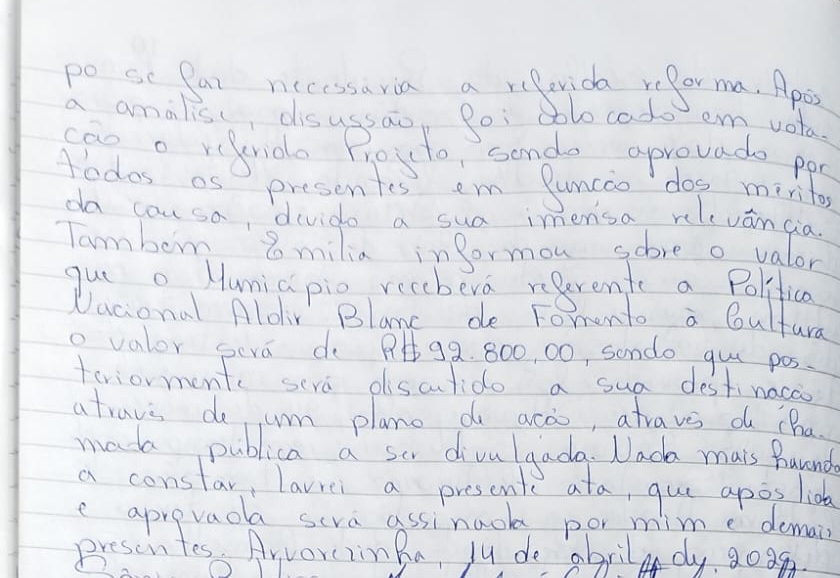 po se faz necessária a referida reforma. Após
a análise, discussão, foi colocado em vota-
ção o referido Projeto, sendo aprovado por
todos os presentes em função dos méritos
da causa, devido a sua imensa relevância.
Também Emília informou sobre o valor
que o Município receberá referente a Política
Nacional Aldir Blanc de Fomento à Cultura
o valor será de R$ 92.800,00, sendo que pos-
teriormente será discutido a sua destinação
através de um plano de ação, através de cha-
mada pública a ser divulgada. Nada mais havendo
a constar, lavrei a presente ata, que após lida
e aprovada será assinada por mim e demais
presentes. Arvorezinha, 14 de abril